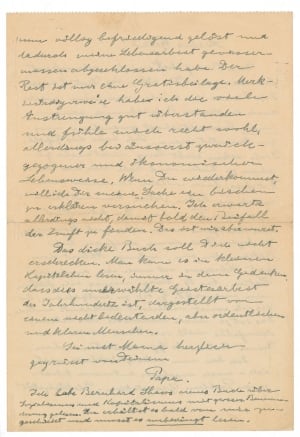 nun völlig befriedigend gelöst und
dadurch meine Lebensarbeit gewisser-
massen abgeschlossen habe. Der
Rest ist nur eine Gratisbeilage. Merk-
würdigerweise habe ich die viele
Anstrengung gut überstanden
und fühle mich recht wohl,
allerdings bei äusserst zurück-
gezogener und ökonomischer
Lebensweise. Wenn Du wiederkommst,
will ich Dir meine Sache ein bischen
zu erklären versuchen. Ich erwarte
allerdings nicht, damit bald den Beifall
der Zunft zu finden. Das ist
Das dicke Buch soll Dich nicht
erschrecken. Man kann es in kleinen
Kapitelchen lesen, immer in dem Gedanken
dass dies
des Jahrhunderts ist, dargestellt von
einem nicht bedeutenden, aber ordentlichen
und klaren Menschen.
Sei mit Mama herzlich
gegrüsst von Deinem
Papa.
Ich habe Bernhard Shaws neues Buch über
Sozialismus und Kapitalismus mit grosser Bewunde-
rung gelesen. Du erhältst es bald von mir
geschickt und musst es unbedingt lesen.